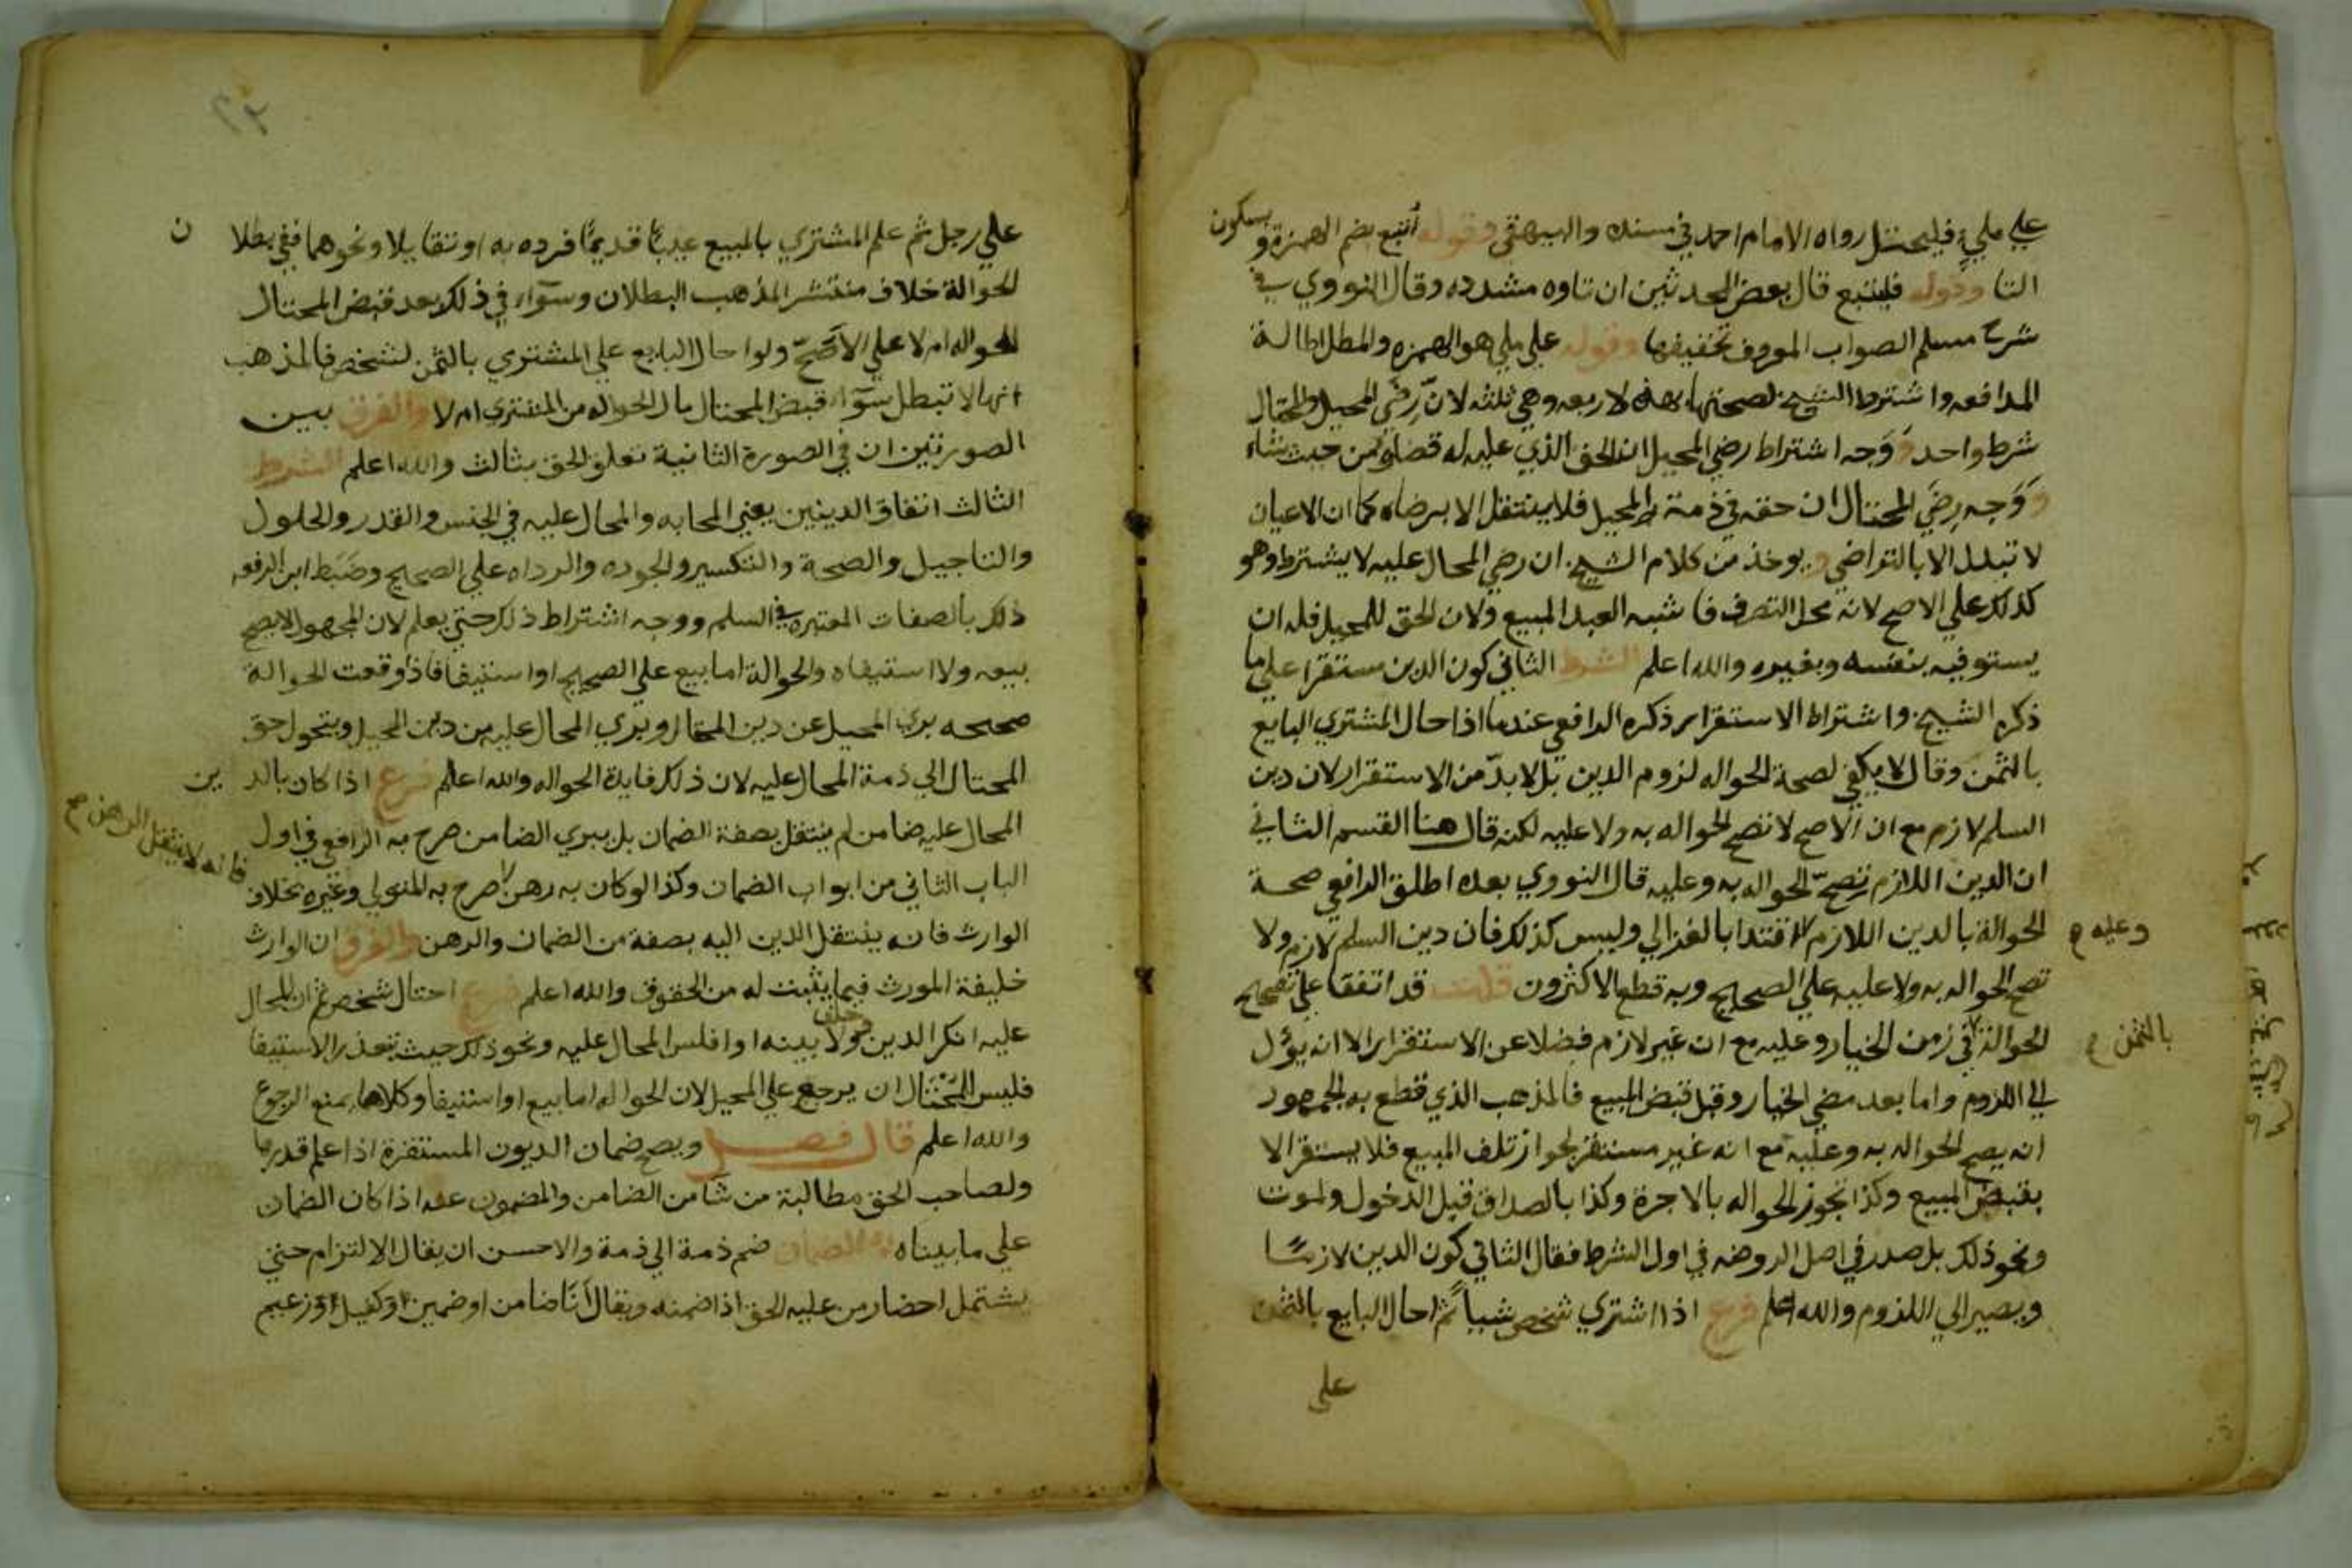 علي مليء فليحتل رواه الامام احمد في مسنده والبيهقي وقوله أتبع بضم الهمزة وبسكون
التا وقوله فليتبع قال بعض المحدثين ان تاوه مشدده وقال النووي في
شرح مسلم الصواب المعروف تخفيفها وقوله علي ملي هو الهمزه والمطل اطالة
المدافعه واشترط الشيخ لصحتها بهذه الاربعه وهي ثلثه لانّ رِضَى المحيل والمحتال
شرط واحد ووَجه اشتراط رضي المحيل ان الحق الذي عليه له قضاوه من حيث شاء
ووَجه رِضَي المحتال ان حقه في ذمة المحيل فلا ينتقل الا برضاه كما ان الاعيان
لا تبدل الا بالتراضي ويوخذ من كلام الشيخ ان رضي المحال عليه لا يشترط وهو
كذلك علي الاصح لانه محل التصرف فاشبه العبد المبيع ولان الحق للمحيل فله ان
يستوفيه بنفسه وبغيره والله اعلم الشرط الثاني كون الدين مستقرا علي ما
ذكره الشيخ واشتراط الاستقرار ذكره الرافعي عندما اذا احال المشتري البايع
بالثمن وقال لا يكفي لصحة الحواله لزوم الدين بل لا بدّ من الاستقرار لان دين
السلم لازم مع ان الاصح لا تصح الحواله به ولا عليه لكنه قال هنا القسم الثاني
ان الدين اللازم تصحّ الحواله به وعليه قال النووي بعده اطلق الرافعي صحة
الحوالة بالدين اللازم اقتدا بالغزالي وليس كذلك فان دين السلم لازم ولا
وعليه
تصح الحواله به ولا عليه علي الصحيح وبه قطع الاكثرون قلت قد اتفقا علي تصحيح
الحوالة في زمن الخيار وعليه مع ان غير لازم فضلا عن الاستقرار الا انه يؤل
بالثمن
الي اللزوم واما بعد مضي الخيار وقبل قبض المبيع فالمذهب الذي قطع به الجمهور
انه يصح الحواله به وعليه مع انه غير مستقر لجواز تلف المبيع فلا يستقر الا
بقبض المبيع وكذا تجوز الحواله بالاجرة وكذا بالصداق قبل الدخول والموت
ونحو ذلك بل صدر في اصل الروضه في اول الشرط فقال الثاني كون الدين لازمًا
ويصير الي اللزوم والله اعلم فرع اذا اشتري شخص شيا ثم احال البايع بالثمن
علي
علي رجل ثم علم المشتري بالمبيع عيبًا قديمًا فرده به او تقايلا ونحوهما ففي بطلان
الحوالة خلاف منتشر المذهب البطلان وسوآء في ذلك بعد قبض المحتال
الحواله ام لا علي الاصحّ ولو احال البايع علي المشتري بالثمن لشخص فالمذهب
انها لا تبطل سوآء قبض المحتال مال الحواله من المشتري ام لا والفرق بين
الصورتين ان في الصورة الثانية تعلق الحق بثالث والله اعلم الشرط
الثالث اتفاق الدينين يعني المحابه والمحال عليه في الجنس والقدر والحلول
والتاجيل والصحة والتكسير والجوده والرداه علي الصحيح وضَبَط ابن الرفعه
ذلك بالصفات المعتبره في السلم ووجه اشتراط ذلك حتي يعلم لان المجهول لا يصح
بيعه ولا استيفاه والحوالة اما بيع علي الصحيح او استيفا فاذا وقعت الحوالة
صحيحه بري المحيل عن دين المحتال وبري المحال عليه من دين المحيل ويتحول حق
المحتال الي ذمة المحال عليه لان ذلك فايدة الحواله والله اعلم فرع اذا كان بالدين
المحال عليه ضامن لم ينتقل بصفة الضمان بل يبري الضامن صرح به الرافعي في اول
فانه لا ينتقل الرهن صح
الباب الثاني من ابواب الضمان وكذا لو كان به رهن صرح به المتولي وغيره بخلاف
الوارث فانه ينتقل الدين اليه بصفة من الضمان والرهن والفرق ان الوارث
خليفة المورث فيما يثبت له من الحقوق والله اعلم فرع احتال شخص ثم ان المحال
عليه انكر الدين وحلف ولا بينه او افلس المحال عليه ونحو ذلك حيث يتعذر الاستيفا
فليس للمحتال ان يرجع علي المحيل لان الحواله اما بيع او استيفا وكلاهما يمنع الرجوع
والله اعلم قال فصل ويصح ضمان الديون المستقرة اذا علم قدرها
ولصاحب الحق مطالبة من شا من الضامن والمضمون عنه اذا كان الضمان
علي ما بيناه الضمان ضم ذمة الي ذمة والاحسن ان يقال الالتزام حتي
يشتمل احضار من عليه الحق اذا ضمنه ويقال أنا ضامن او ضمين او كفيل او زعيم